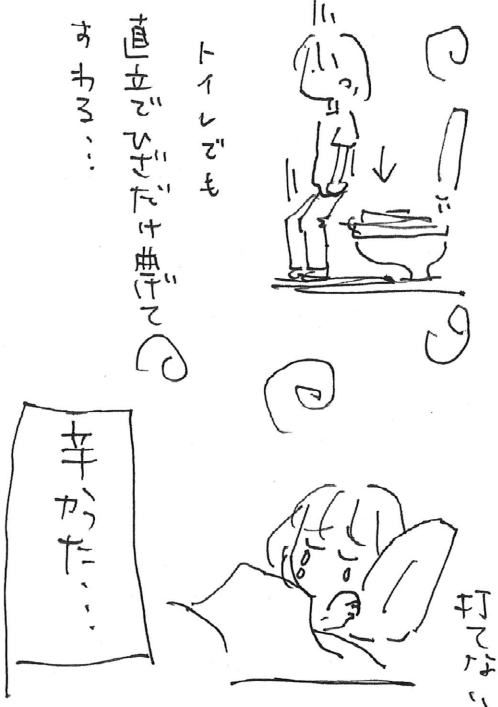 トイレでも
直立でひざだけ曲げて
すわる…
打てない
辛かった…